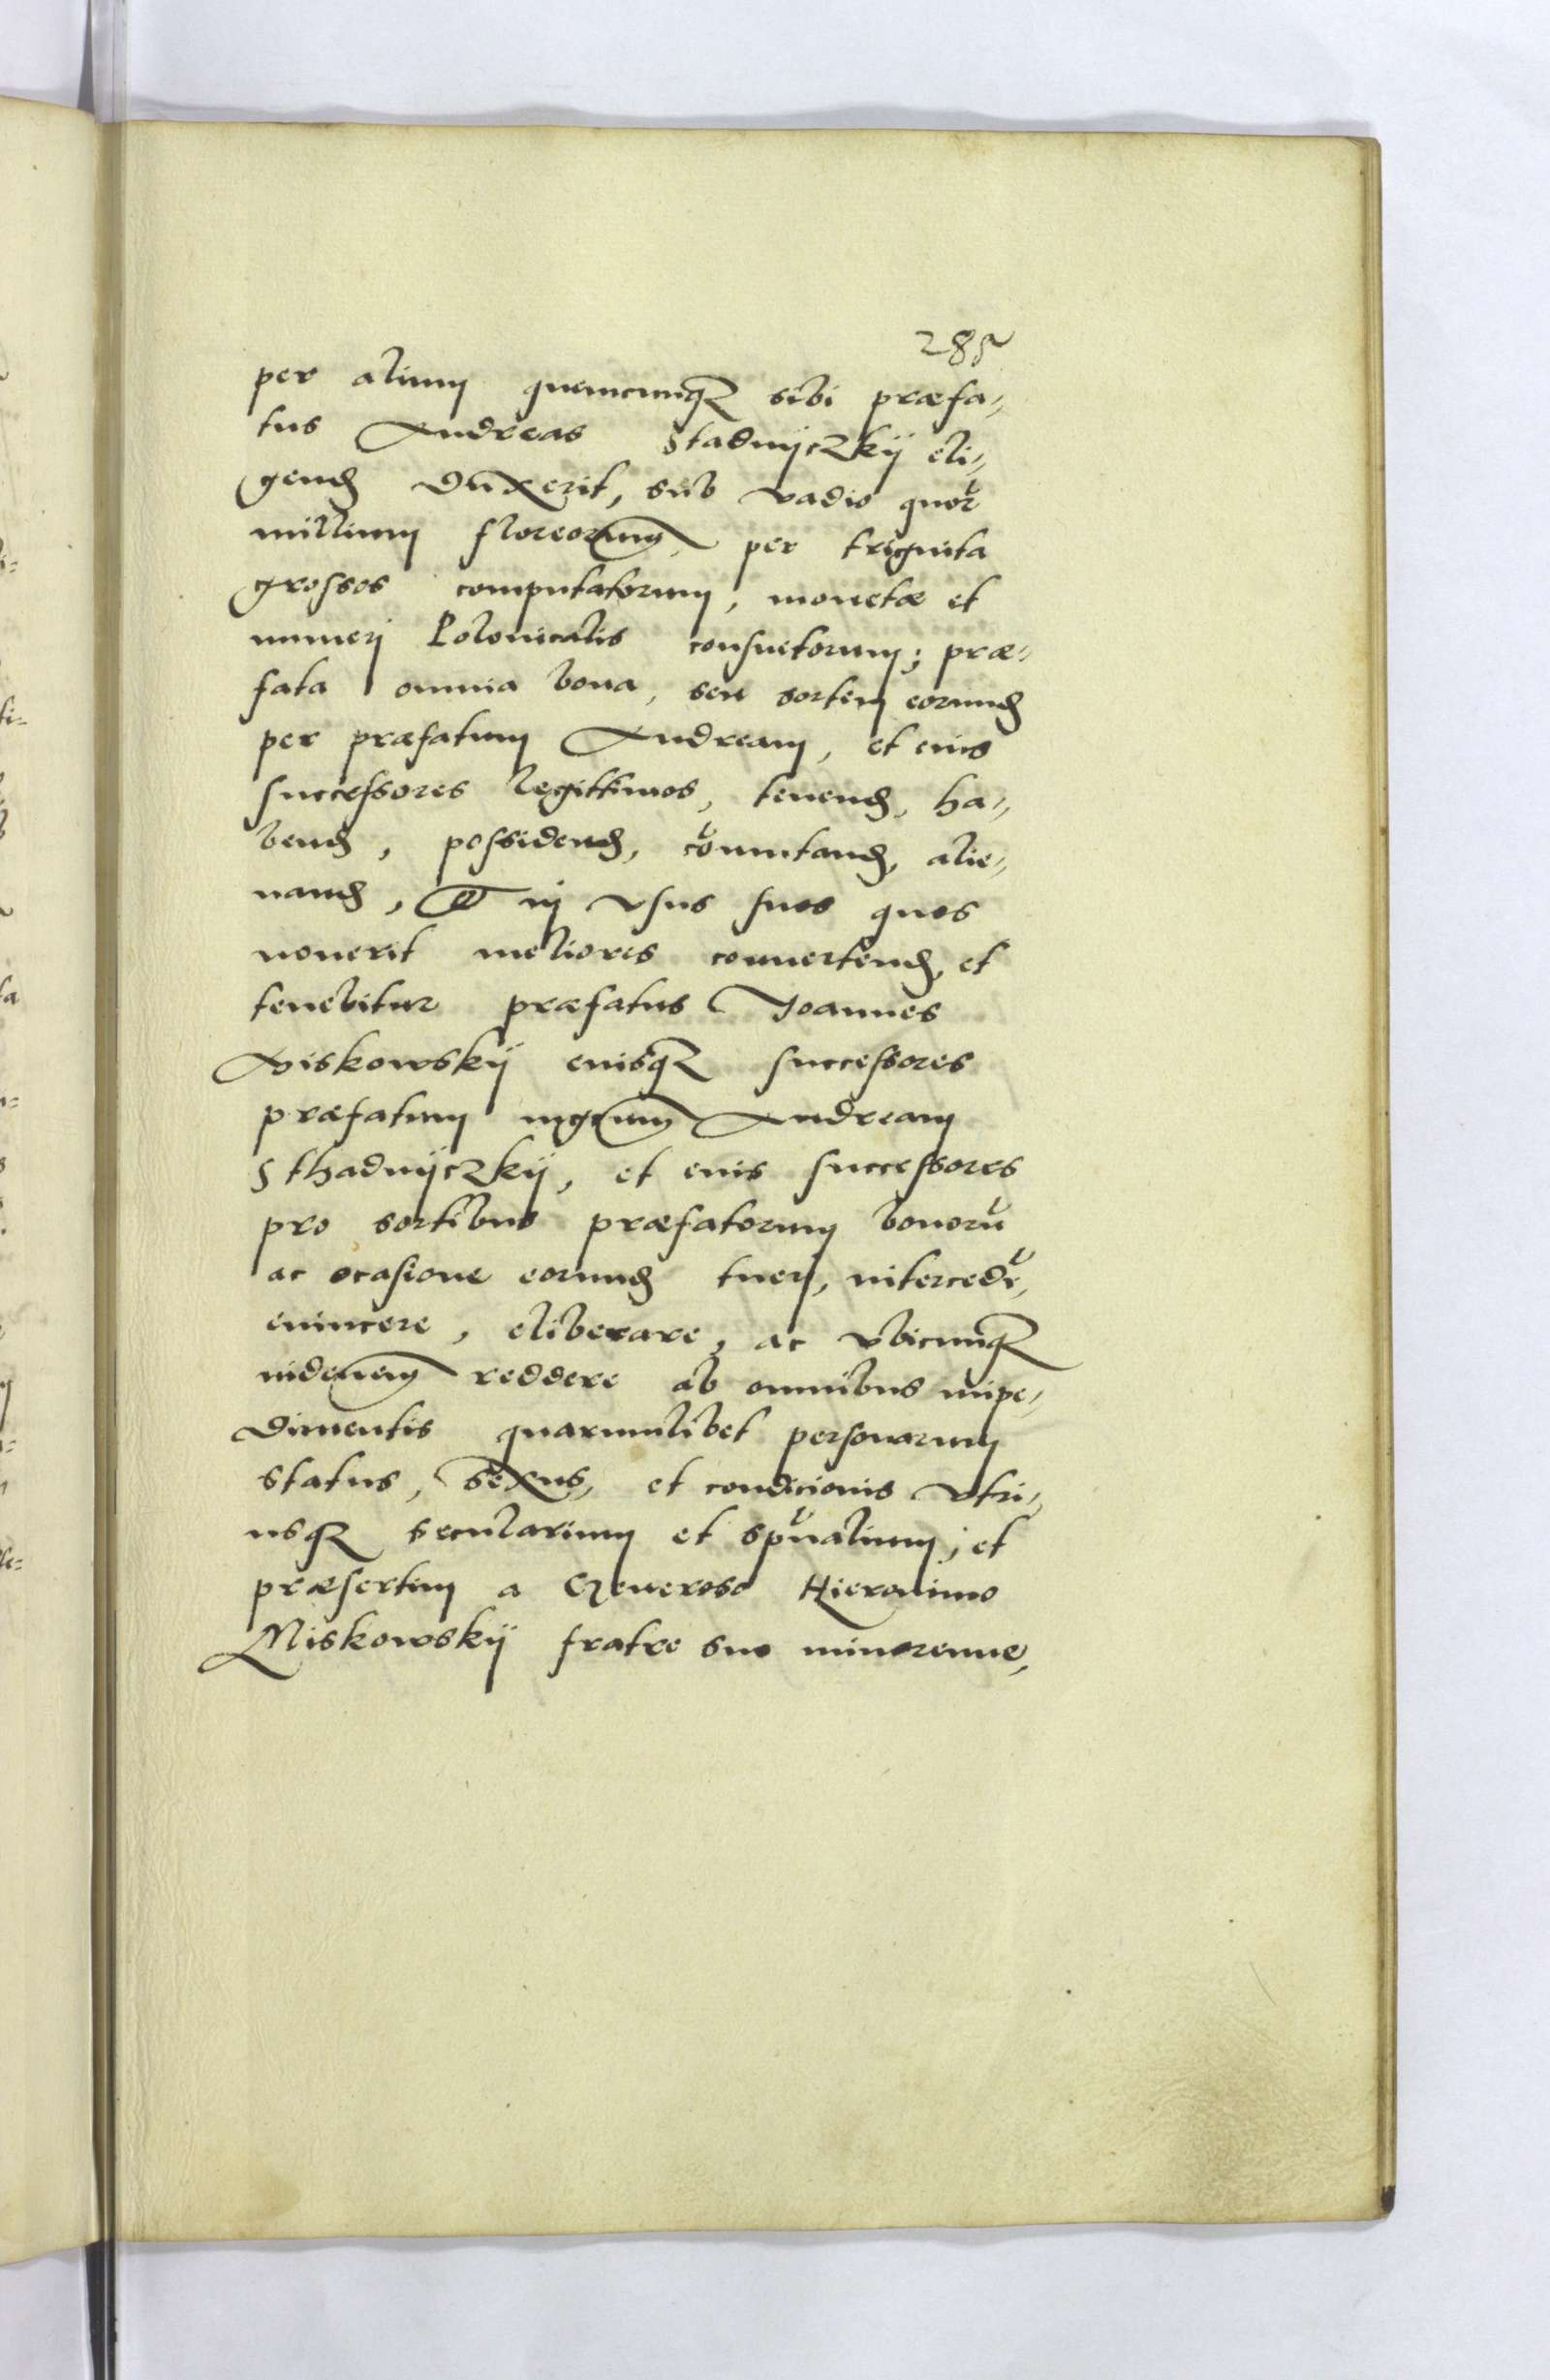 285
per alium quemcunq₃ sibi præfa-
tus Andreas Stadnyczkÿ eli-
gend duxerit, sub vadio quor
millium floreorum per triginta
grossos computatorum, monetæ et
numeri Polonicalis consuetorum; præ-
fata omnia bona, seu sortem eorund
per præfatum Andream, et eius
successores legittimos, tenend, ha-
bend, possidend, comutand, alie-
nand, Et in vsus suos quos
nouerit meliores conuertend, et
tenebitur præfatus Joannes
Miskowskÿ eiusq₃ successores
præfatum mgcum Andream
Sthadnÿczkÿ, et eius successores
pro sortibus præfatorum bonorū
ac ocasione eorund tueri, intercedē,
euincere, eliberare, ac vbicunq₃
indemnem reddere ab omnibus impe-
dimentis quarumlibet personarum
status, sexus, et condicionis vtri-
usq₃ secularium et spūalium; et
præsertim a Generoso Hieronimo
Miskowskÿ fratre suo minorenne,